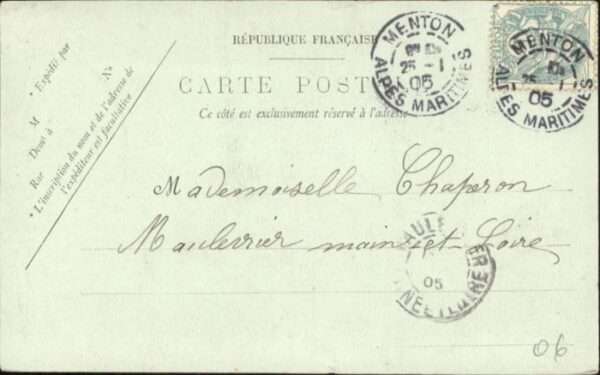 RÉPUBLIQUE FRANÇAISE
CARTE POST
Ce côté est exclusivement réservé à l'adresse
* Expédié par
M
N°
Demt à
Rue
* L'inscription du nom et de l'adresse de
l'expéditeur est facultative
MENTON
25 -1
05
ALPES MARITIMES
MENTON
25 -1
05
ALPES MARITIMES
Mademoiselle Chaperon
Maulevrier maine et-Loire
05
06